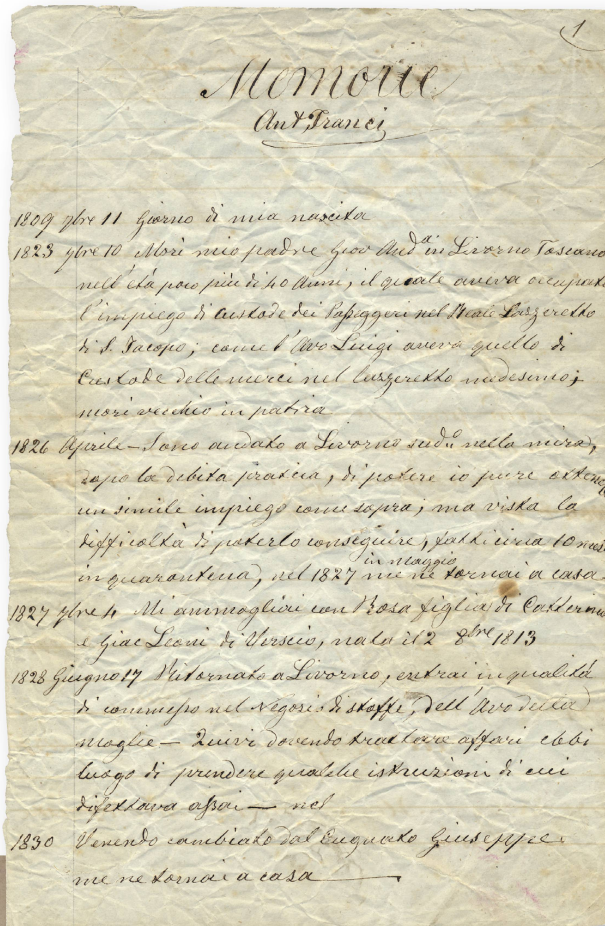 1
Memorie
Ant. Franci
1809 7bre 11 Giorno di mia nascita
1823 9bre 10 Morì mio padre Giov. And.a in Livorno Toscana
nell'età poco più di 40 Anni; il quale aveva occupato
l'impiego di Custode dei Passeggeri nel Reale Lazzeretto
di S. Jacopo; come l'Avo Luigi aveva quello di
Custode delle merci nel Lazzeretto medesimo;
morì vecchio in patria
1826 Aprile – Sono andato a Livorno sud.o nella mira,
dopo la debita pratica, di potere io pure ottenere
un simile impiego come sopra; ma vista la
difficoltà di poterlo conseguire, fatti circa 10 mesi
in quarantena, nel 1827 in Maggio me ne tornai a casa
1827 9bre 4 Mi ammogliai con Rosa figlia di Catterina
e Giac Leoni di Verscio, nata il 2 8bre 1813
1828 Giugno 17 Ritornato a Livorno, entrai in qualità
di commesso nel Negozio di stoffe, dell'Avo della
Moglie – Quivi dovendo trattare affari ebbi
luogo di prendere qualche istruzioni di cui
difettava assai — nel
1830 Venendo cambiato dal Cugnato Giuseppe
me ne tornai a casa —